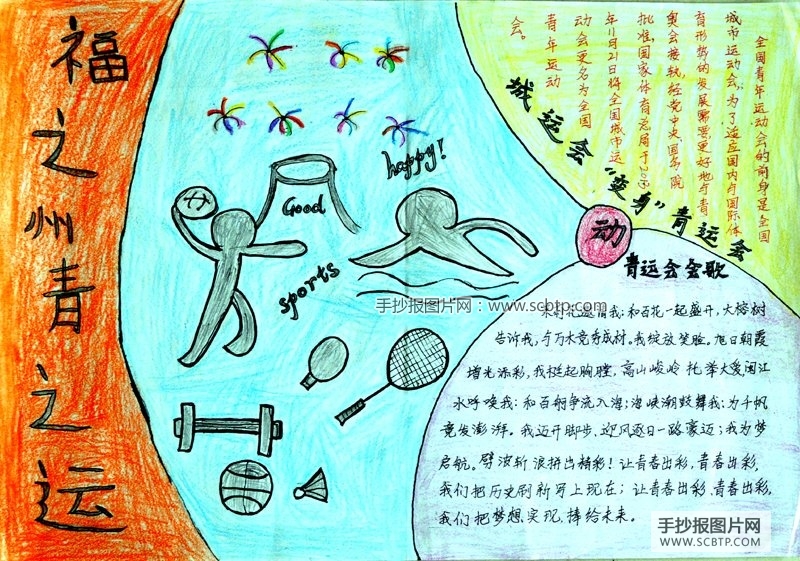 福之州青之运
全国青年运动会的前身是全国
城市运动会,为了适应国内与国际体
育形势的发展需要,更好地与青
奥会接轨,经党中央国务院
批准国家体育总局于2013
年11月21日将全国城市运
动会更名为全国
青年运动
会。
城运会“变身”青运会
动
happy!
Good
sports
青运会会歌
手抄报图片网:www.scbtp.com
茉莉花邀请我:和百花一起盛开,大榕树
告诉我,与万木竞秀成材。我绽放笑脸。旭日朝霞
增光添彩,我挺起胸膛,高山峻岭托举大爱,闽江
水呼唤我:和百舸争流入海;海峡潮鼓舞我:为千帆
竞发澎湃。我迈开脚步、迎风逐日一路豪迈;我为梦
启航。劈波斩浪拼出精彩!让青春出彩,青春出彩,
我们把历史刷新写上现在;让青春出彩、青春出彩,
我们把梦想实现,捧给未来。
手抄报图片网
WWW.SCBTP.COM